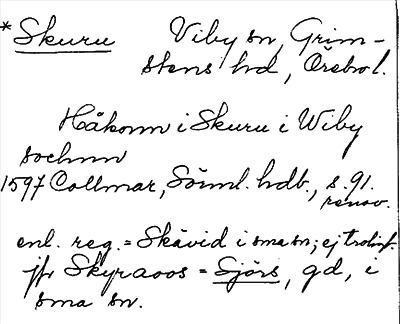 *Skuru Viby sn, Grim-
stens hd, Örebro l.
Håkonn i Skuru i Wiby
sochnn
1597 Collmar, Söml. hdb., s. 91.
renov.
enl. reg. = Skävid i sma sn; ej trolig.
jfr Skyraoos = Sjörs, gd, i
sma sn.